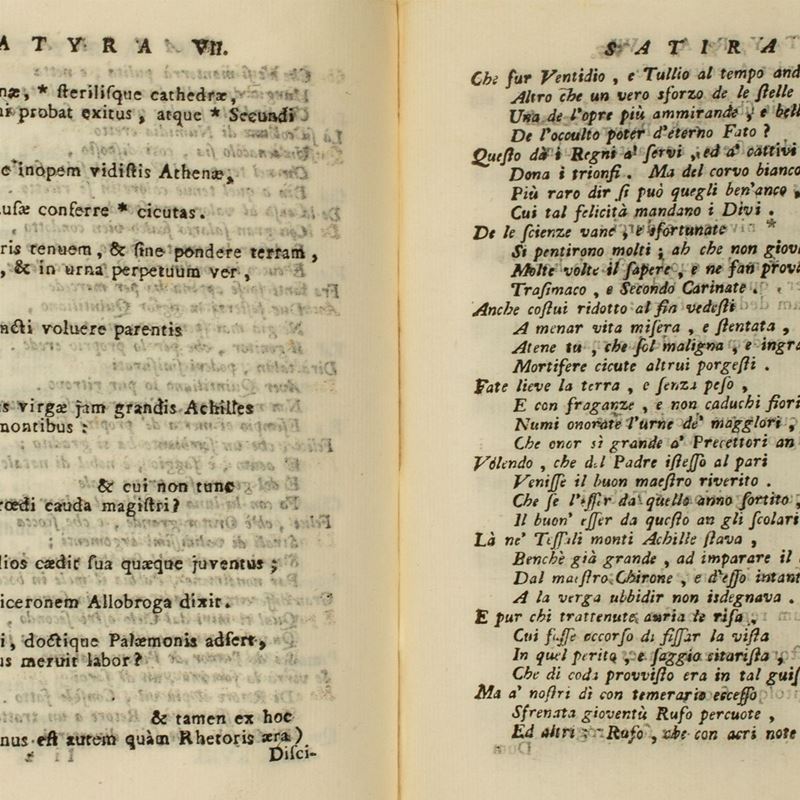 A T Y R A VII.
næ, * ſteriliſque cathedræ,
probat exitus, atque * Secundi
inopem vidiſtis Athenæ,
uſæ conferre * cicutas.
ris tenuem, & ſine pondere terram,
, & in urna perpetuum ver,
ncti voluere parentis
s virgæ jam grandis Achilles
montibus:
& cui non tunc
rœdi cauda magiſtri?
lios cædit ſua quæque juventus;
iceronem Allobroga dixit.
i, doctique Palæmonis adfert,
us meruit labor?
& tamen ex hoc
nus eſt autem quàm Rhetoris æra)
Diſci-
S A T I R A
Che fur Ventidio, e Tullio al tempo and
Altro che un vero sforzo de le ſtelle
Una de l'opre più ammirande, e bell
De l'occulto poter d'eterno Fato?
Queſto dà i Regni a' ſervi, ed a' cattivi
Dona i trionfi. Ma del corvo bianco
Più raro dir ſi può quegli ben'anco,
Cui tal felicità mandano i Divi.
De le ſcienze vane, e sfortunate *
Si pentirono molti; ah che non giov
Molte volte il ſapere, e ne fan prov
Traſimaco, e Secondo Carinate.
Anche coſtui ridotto al fin vedeſti
A menar vita miſera, e ſtentata,
Atene tu, che ſol maligna, e ingra
Mortifere cicute altrui porgeſti.
Fate lieve la terra, e ſenza peſo,
E con fraganze, e non caduchi fiori
Numi onorate l'urne de' maggiori,
Che onor sì grande a' Precettori an
Volendo, che del Padre iſteſſo al pari
Veniſſe il buon maeſtro riverito.
Che ſe l'eſſer da quello anno ſortito,
Il buon' eſſer da queſto an gli ſcolari
Là ne' Teſſali monti Achille ſtava,
Benchè già grande, ad imparare il
Dal maeſtro Chirone, e d'eſſo intant
A la verga ubbidir non iſdegnava.
E pur chi trattenute auria le riſa,
Cui fuſſe occorſo di fiſſar la viſta
In quel perito, e ſaggio citariſta,
Che di coda provviſto era in tal guiſ
Ma a' noſtri dì con temerario ecceſſo
Sfrenata gioventù Rufo percuote,
Ed altri: Rufo, che con acri note